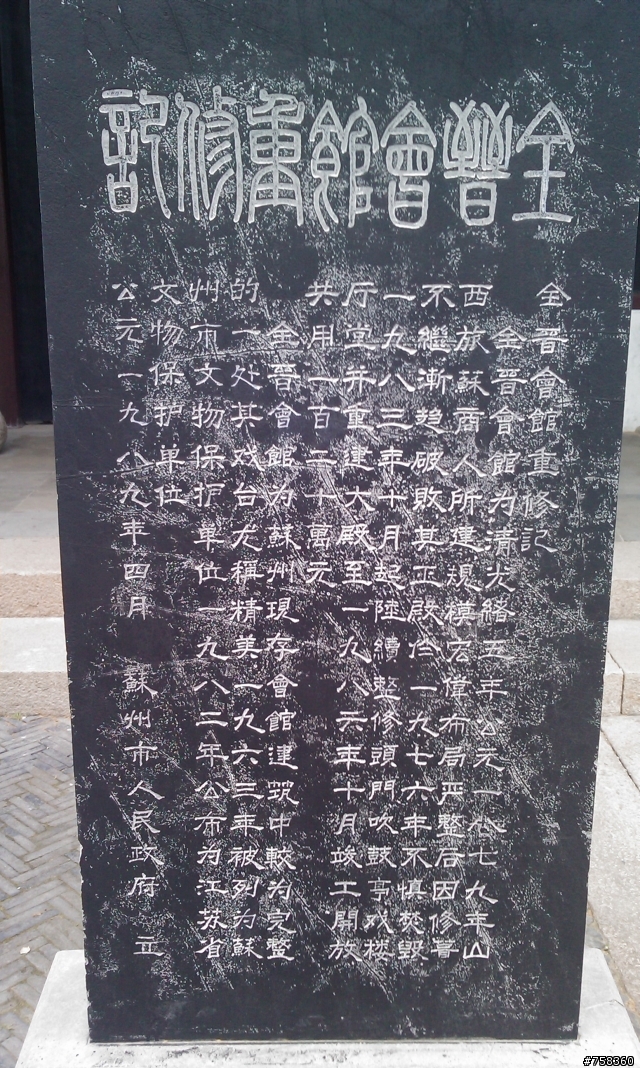 全晉會館重修記
全晉會館重修記
全晉會館为清光緒五年公元一八七九年山
西旅蘇商人所建規模宏偉布局严整后因修葺
不繼漸趋破敗其正殿於一九七六年不慎焚毁
一九八三年十月起陸續整修頭門吹鼓亭戏楼
厅室并重建大殿至一九八六年十月竣工開放
共用一百二十萬元
全晉會館为蘇州現存會館建筑中較为完整
的一处其戏台尤稱精美一九六三年被列为蘇
州市文物保护单位一九八二年公布为江苏省
文物保护单位
公元一九八九年四月 蘇州市人民政府 立
#758360